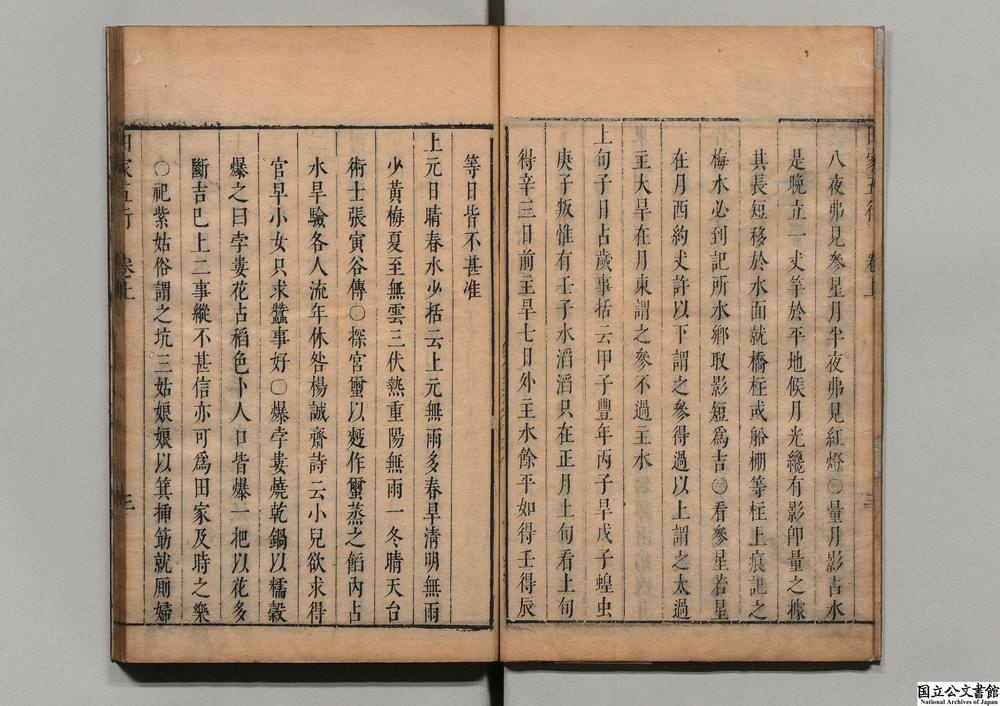 八夜弗見參星月半夜弗見紅燈〇量月影占水
是晚立一丈竿於平地候月光纔有影卽量之據
其長短移於水面就橋柱或船棚等柱上痕記之
梅水必到記所水鄉取影短爲吉〇看參星若星
在月西約丈許以下謂之參得過以上謂之太過
主大旱在月東謂之參不過主水
上旬子日占歲事括云甲子豐年丙子旱戊子蝗虫
庚子叛惟有壬子水滔滔只在正月上旬看上旬
得辛三日前主旱七日外主水餘平如得壬得辰
等日皆不甚准
上元日晴春水少括云上元無雨多春旱清明無雨
少黃梅夏至無雲三伏熱重陽無雨一冬晴天台
術士張寅谷傳〇探官蠒以麪作蠒蒸之餡內占
水旱驗各人流年休咎楊誠齋詩云小兒欲求得
官早小女只求蠶事好〇爆孛婁燒乾鍋以糯穀
爆之曰孛婁花占稻色卜人口皆爆一把以花多
斷吉已上二事縱不甚信亦可爲田家及時之樂
〇祀紫姑俗謂之坑三姑娘娘以箕揷筯就厠婦
田家五行 卷上 三
国立公文書館
National Archives of Japan